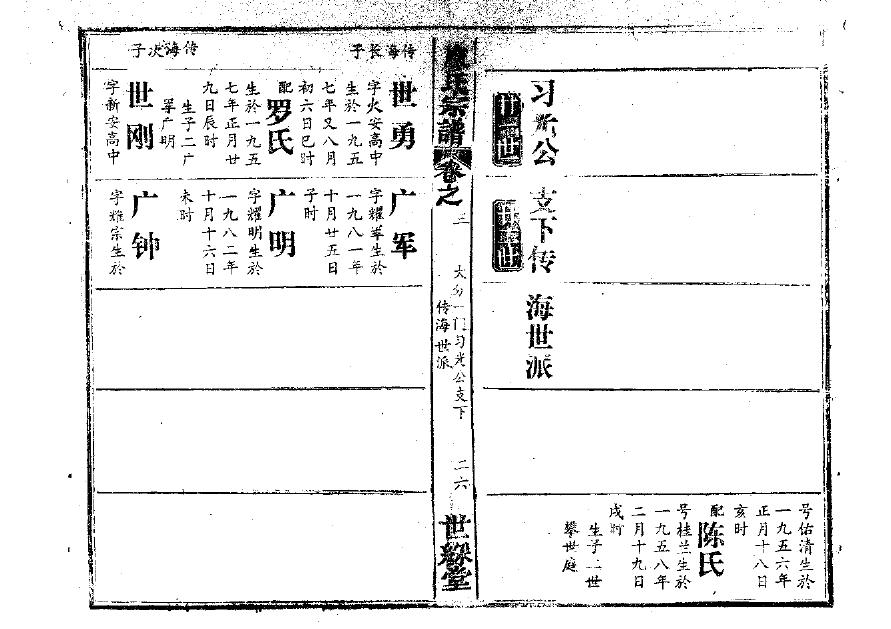 号佑清生於
一九五六年
正月十八日
亥时
配陈氏
号桂兰生於
一九五八年
二月十九日
戌时
生子二世
攀世庭
习光公支下传海世派
氏宗譜卷之三
大分一门习光公支下
传海世派
二六
世綵堂
传海长子
世勇
字火安高中
生於一九五
七年又八月
初六日巳时
配罗氏
生於一九五
七年正月廿
九日辰时
生子二广
军广明
传海次子
世刚
字新安高中
广军
字耀军生於
一九八一年
十月廿五日
子时
广明
字耀明生於
一九八二年
十月十六日
未时
广钟
字耀宗生於